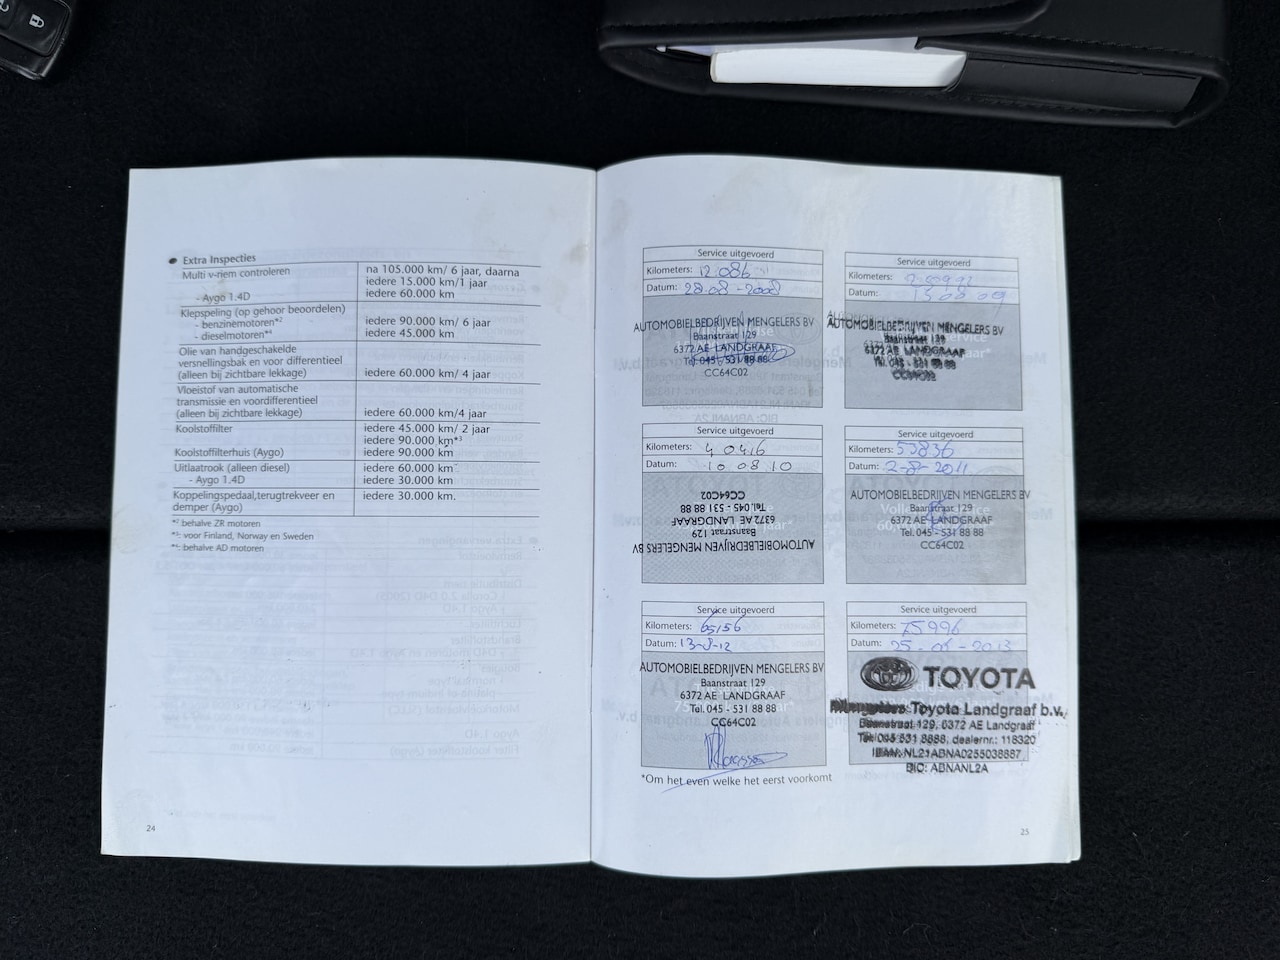 Extra Inspecties
Multi v-riem controleren
na 105.000 km/ 6 jaar, daarna
iedere 15.000 km/1 jaar
- Aygo 1.4D
iedere 60.000 km
Klepspeling (op gehoor beoordelen)
- benzinemotoren*²
iedere 90.000 km/ 6 jaar
- dieselmotoren*⁴
iedere 45.000 km
Olie van handgeschakelde
versnellingsbak en voor differentieel
(alleen bij zichtbare lekkage)
iedere 60.000 km/ 4 jaar
Vloeistof van automatische
transmissie en voordifferentieel
(alleen bij zichtbare lekkage)
iedere 60.000 km/4 jaar
Koolstoffilter
iedere 45.000 km/ 2 jaar
iedere 90.000 km*³
Koolstoffilterhuis (Aygo)
iedere 90.000 km
Uitlaatrook (alleen diesel)
iedere 60.000 km
- Aygo 1.4D
iedere 30.000 km
Koppelingspedaal,terugtrekveer en
demper (Aygo)
iedere 30.000 km.
*² behalve ZR motoren
voor Finland, Norway en Sweden
behalve AD motoren
24
Service uitgevoerd
Kilometers: 12.086
Datum: 28.08-2008
AUTOMOBIELBEDRIJVEN MENGELERS BV
Baanstraat 129
6372 AE LANDGRAAF
Tel. 045 - 531 88 88
CC64C02
Service uitgevoerd
Kilometers:
Datum:
AUTOMOBIELBEDRIJVEN MENGELERS BV
Baanstraat 129
6372 AE LANDGRAAF
Tel. 045 - 531 88 88
CC64C02
Service uitgevoerd
Kilometers: 40416
Datum: 10 08 10
AUTOMOBIELBEDRIJVEN MENGELERS BV
Baanstraat 129
6372 AE LANDGRAAF
Tel. 045 - 531 88 88
CC64C02
Service uitgevoerd
Kilometers: 53836
Datum: 2-8-2011
AUTOMOBIELBEDRIJVEN MENGELERS BV
Baanstraat 129
6372 AE LANDGRAAF
Tel. 045 - 531 88 88
CC64C02
Service uitgevoerd
Kilometers: 65156
Datum: 13-8-12
AUTOMOBIELBEDRIJVEN MENGELERS BV
Baanstraat 129
6372 AE LANDGRAAF
Tel. 045 - 531 88 88
CC64C02
Service uitgevoerd
Kilometers: 75996
Datum: 2013
TOYOTA
Mengelers Toyota Landgraaf b.v.
Baanstraat 129, 6372 AE Landgraaf
Tel: 045 531 8888, dealernr.: 118320
IBAN: NL21ABNA0255038887
BIC: ABNANL2A
*Om het even welke het eerst voorkomt
25